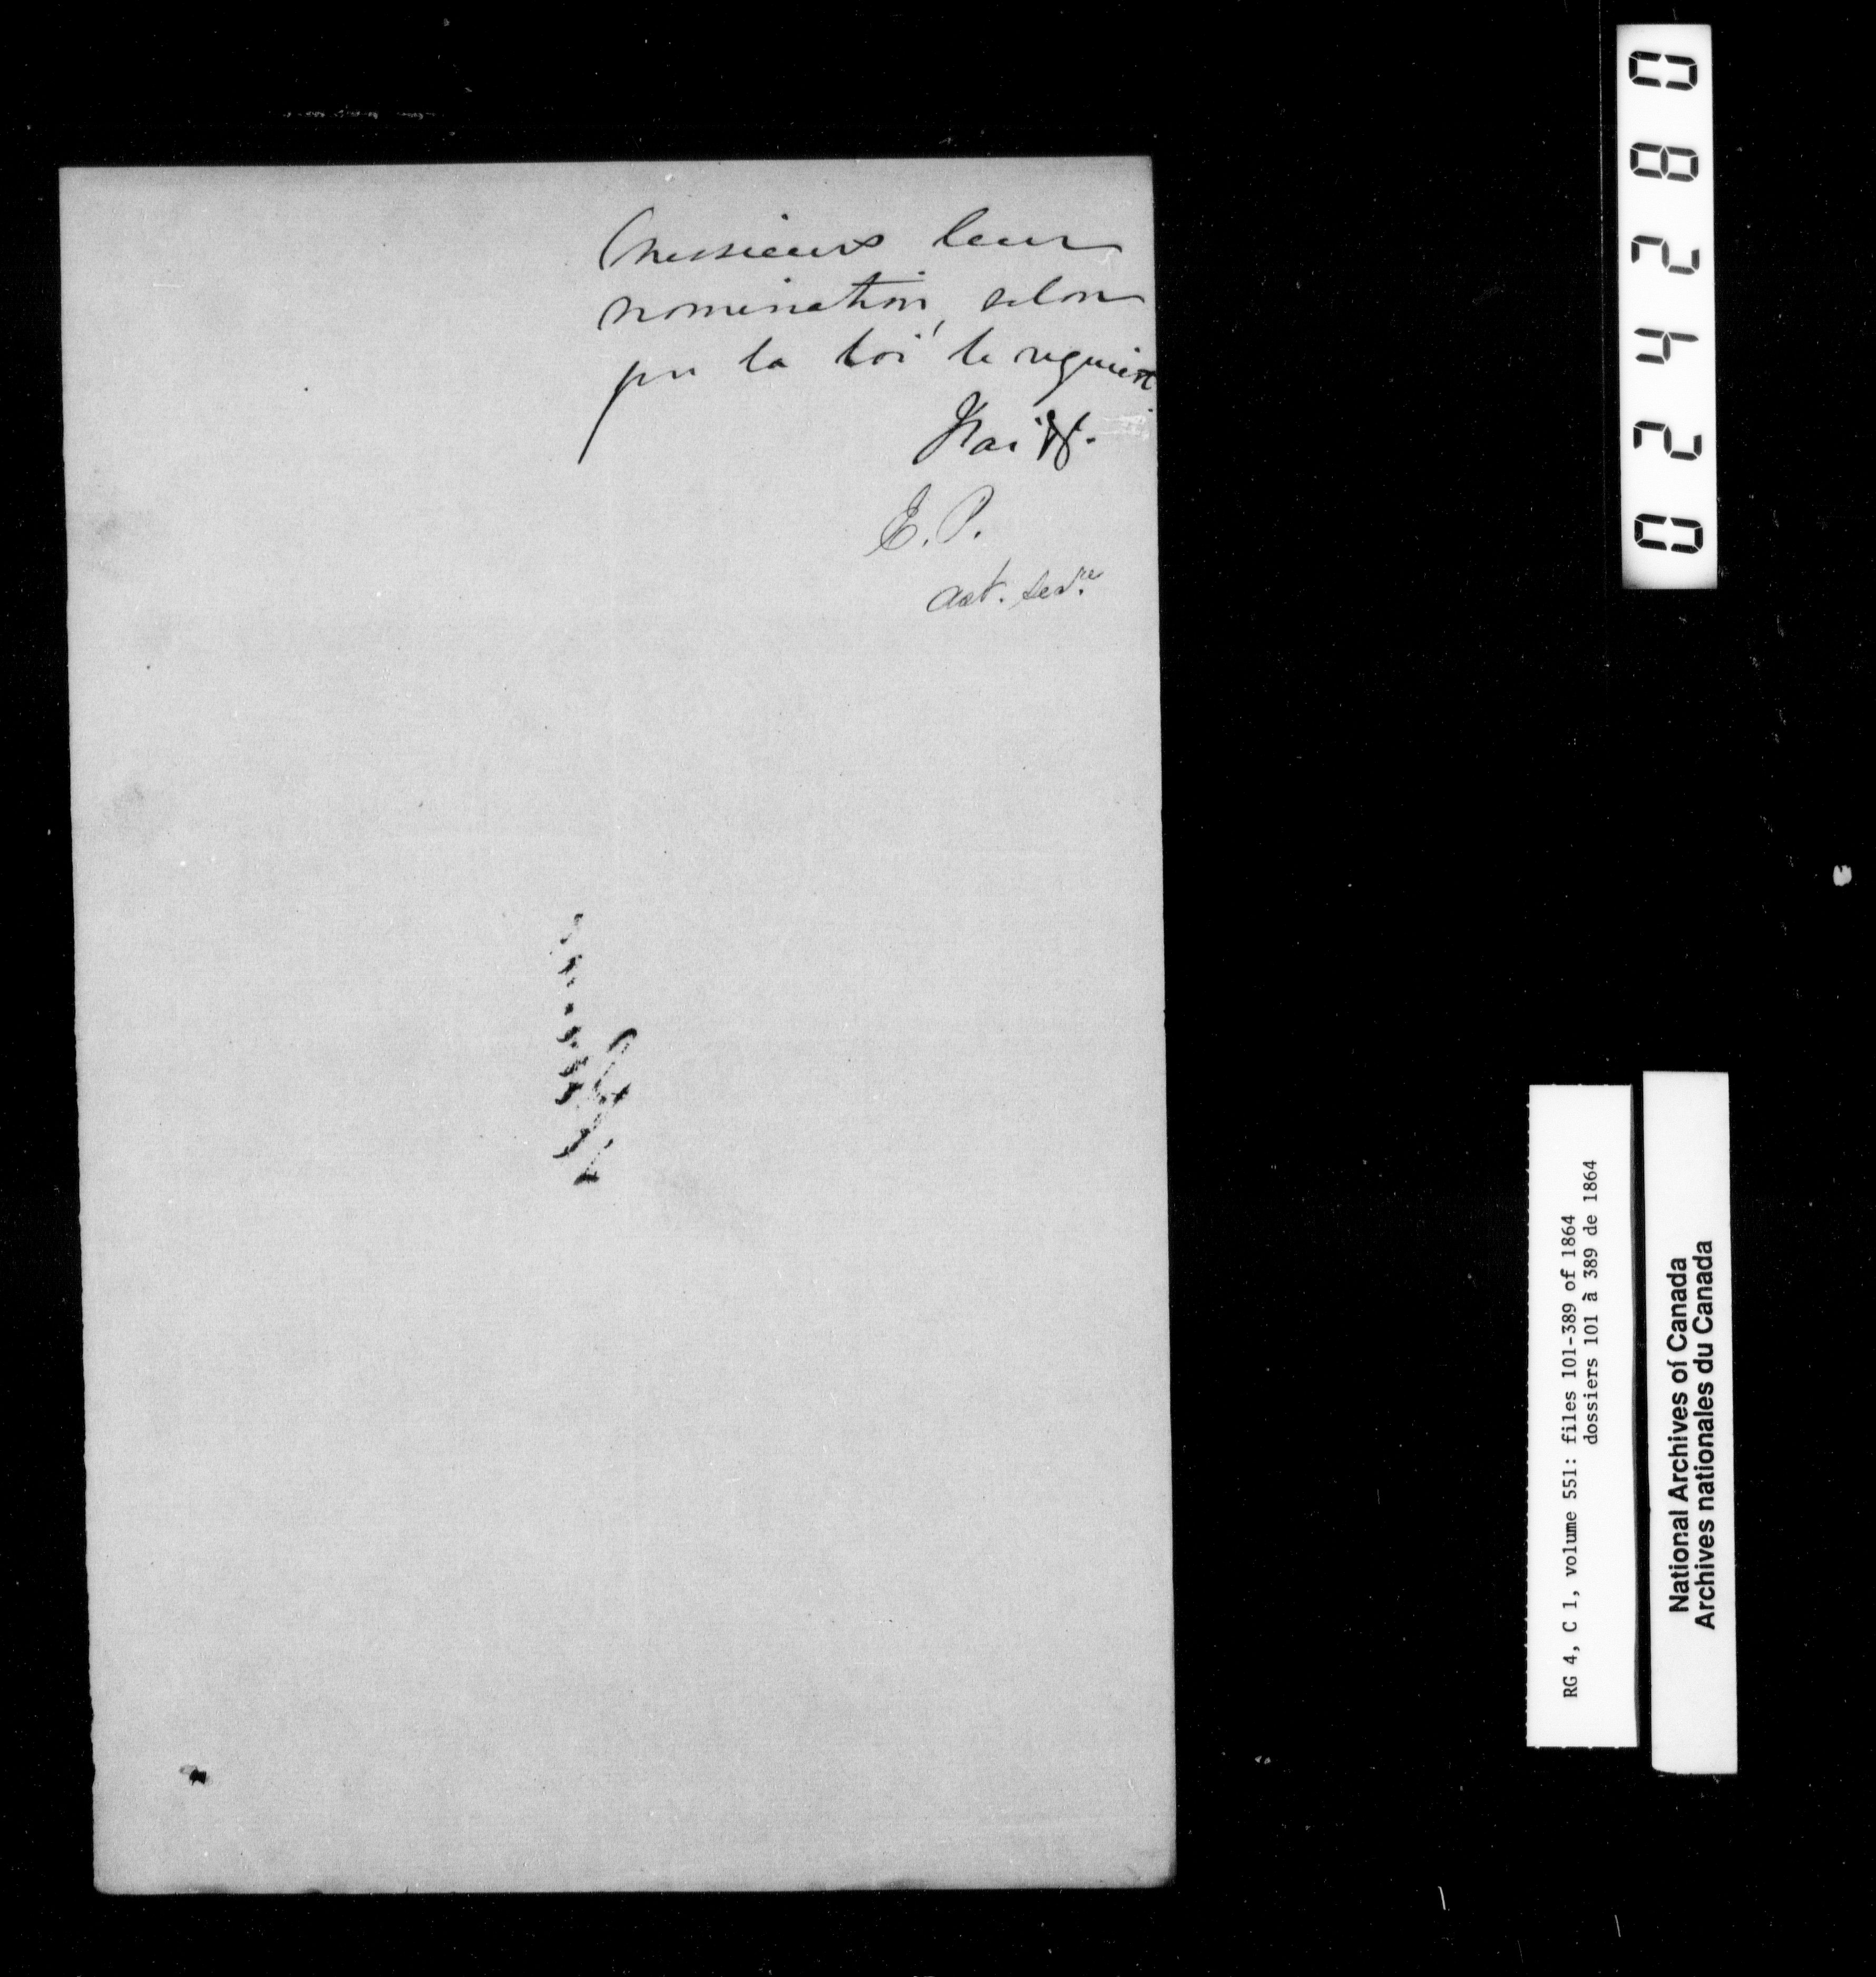 Messieurs leur
nomination, selon
que la loi le requiert
J'ai &c.
E. P.
ast. secre
024280
RG 4, C 1, volume 551: files 101-389 of 1864
dossiers 101 à 389 de 1864
National Archives of Canada
Archives nationales du Canada